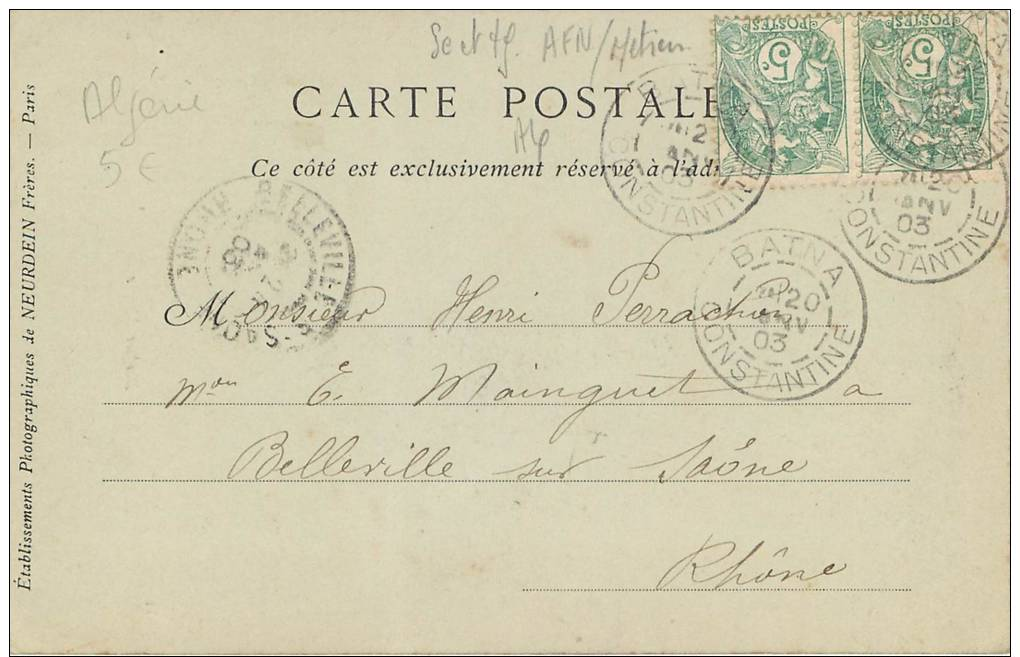 AFN/Métier
CARTE POSTALE
Algérie
5 €
Alg
Ce côté est exclusivement réservé à l'adr
POSTES
5
POSTES
5
BATNA
20
JANV
03
CONSTANTINE
BATNA
20
JANV
03
CONSTANTINE
BATNA
20
JANV
03
CONSTANTINE
BELLEVILLE-S-SAONE
RHONE
Monsieur Henri Perrachon
mon E. Mainguet a
Belleville sur Saône
Rhône
Établissements Photographiques de NEURDEIN Frères. — Paris